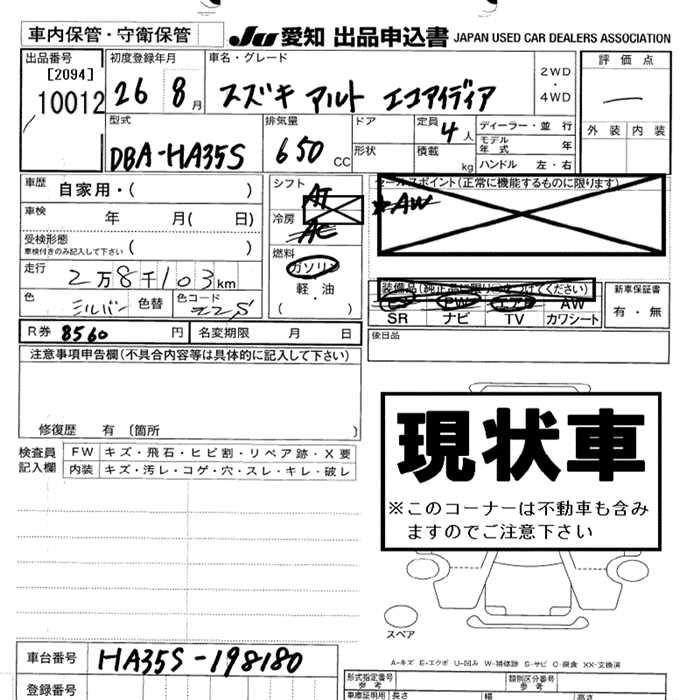 車内保管・守衛保管
JU 愛知 出品申込書 JAPAN USED CAR DEALERS ASSOCIATION
出品番号
[2094]
10012
初度登録年月
26 8月
車名・グレード
スズキ アルト エコアイディア
2WD
・
4WD
評価点
外装 内装
型式
DBA-HA35S
排気量
650 CC
ドア
形状
定員
4人
積載 kg
ディーラー・並行
モデル年式 年
ハンドル 左・右
車歴 自家用・( )
車検 年 月( 日)
受検形態
車検付きのみ記入して下さい ( )
走行 2万8千103km
色 シルバー 色替 色コード
シフト AT
冷房 AC
燃料
ガソリン
軽・油
( )
セールスポイント(正常に機能するものに限ります)
AW
装備品(純正品に限り○をつけてください)
PS PW エアB AW
SR ナビ TV カワシート
新車保証書
有・無
R券 8560 円 名変期限 月 日
後日品
注意事項申告欄(不具合内容等は具体的に記入して下さい)
修復歴 有 〔箇所 〕
検査員
記入欄
FW キズ・飛石・ヒビ割・リペア跡・X要
内装 キズ・汚レ・コゲ・穴・スレ・キレ・破レ
現状車
※このコーナーは不動車も含み
ますのでご注意下さい
スペア
A-キズ E-エクボ U-凹み W-補修跡 S-サビ C-腐食 XX-交換済
車台番号 HA35S-198180
登録番号
形式指定番号
参考
類別区分番号
参考
車証明用 長さ 幅 高さ